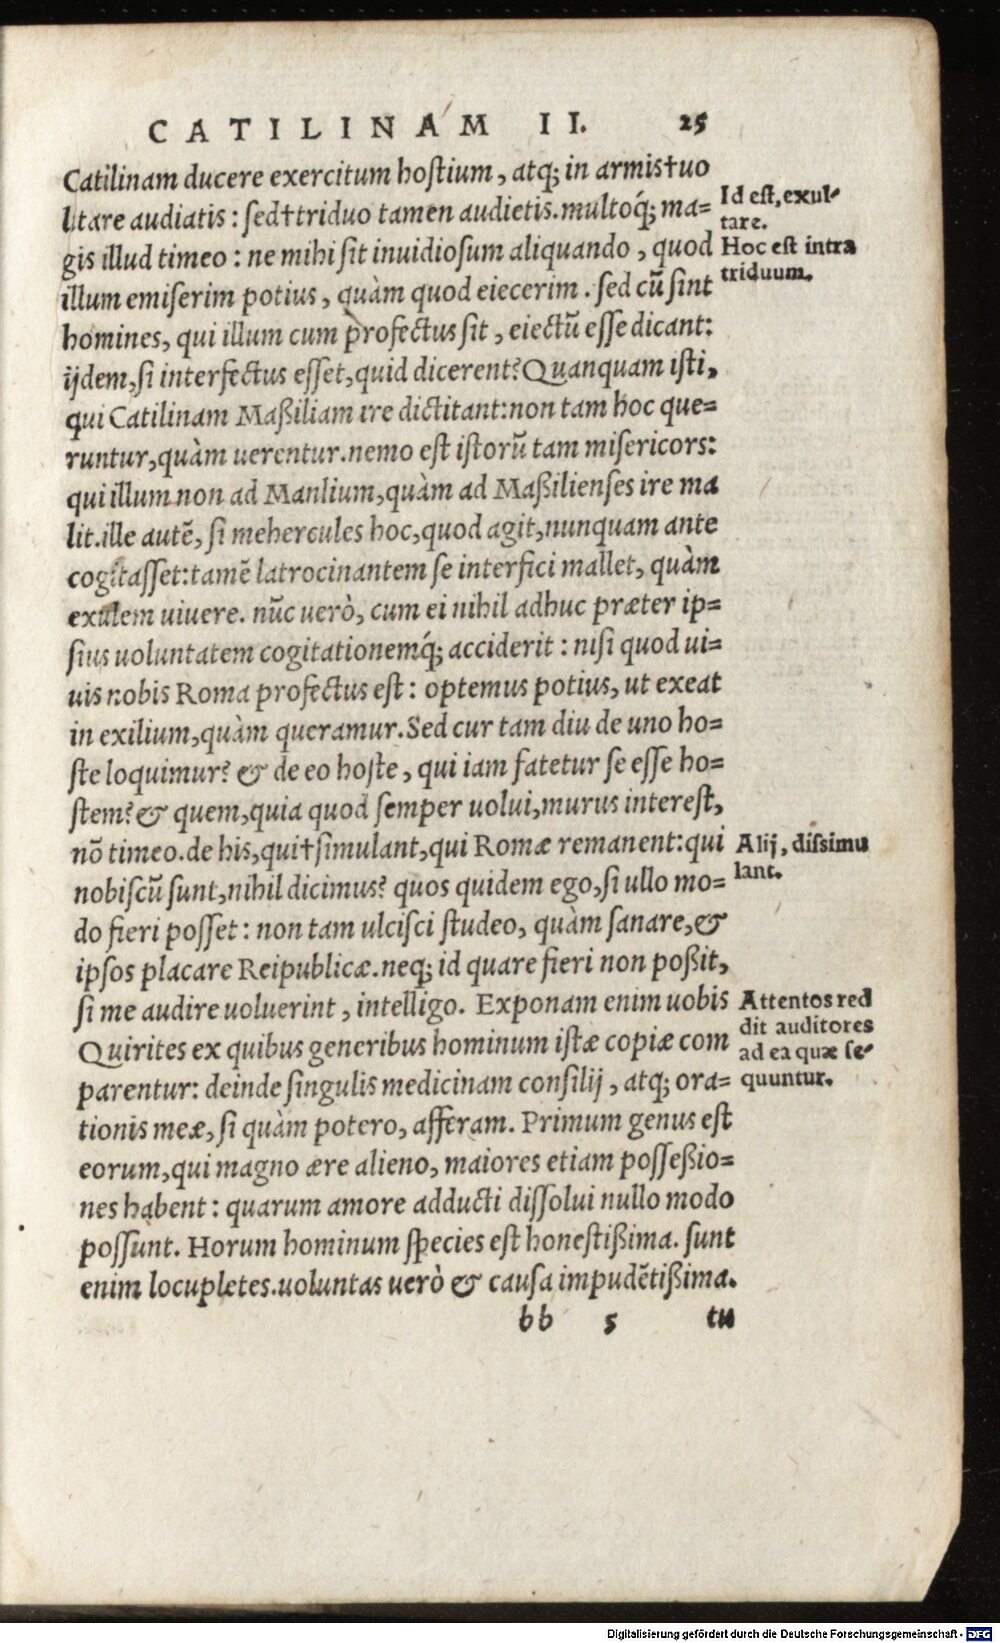 CATILINAM II. 25
Catilinam ducere exercitum hoſtium, atq; in armis†uo
litare audiatis: ſed†triduo tamen audietis.multoq́; ma=
gis illud timeo: ne mihi ſit inuidioſum aliquando, quod
illum emiſerim potius, quàm quod eiecerim. ſed cũ ſint
homines, qui illum cum profectus ſit, eiectũ eſſe dicant:
ijdem,ſi interfectus eſſet,quid dicerent? Quanquam iſti,
qui Catilinam Maßiliam ire dictitant:non tam hoc que=
runtur,quàm uerentur.nemo eſt iſtorũ tam miſericors:
qui illum non ad Manlium,quàm ad Maßilienſes ire ma
lit.ille autẽ, ſi mehercules hoc,quod agit,nunquam ante
cogitaſſet:tamẽ latrocinantem ſe interfici mallet, quàm
exulem uiuere. nũc uerò, cum ei nihil adhuc præter ip=
ſius uoluntatem cogitationemq́; acciderit: niſi quod ui=
uis nobis Roma profectus eſt: optemus potius, ut exeat
in exilium,quàm queramur.Sed cur tam diu de uno ho=
ſte loquimur? & de eo hoſte, qui iam fatetur ſe eſſe ho=
ſtem? & quem,quia quod ſemper uolui,murus intereſt,
nõ timeo.de his,qui†ſimulant,qui Romæ remanent:qui
nobiſcũ ſunt,nihil dicimus? quos quidem ego,ſi ullo mo=
do fieri poſſet: non tam ulciſci ſtudeo, quàm ſanare,&
ipſos placare Reipublicæ.neq; id quare fieri non poßit,
ſi me audire uoluerint, intelligo. Exponam enim uobis
Quirites ex quibus generibus hominum iſtæ copiæ com
parentur: deinde ſingulis medicinam conſilij, atq; ora=
tionis meæ, ſi quàm potero, afferam. Primum genus eſt
eorum,qui magno ære alieno, maiores etiam poſſeßio=
nes habent: quarum amore adducti diſſolui nullo modo
poſſunt. Horum hominum ſpecies eſt honeſtißima. ſunt
enim locupletes.uoluntas uerò & cauſa impudẽtißima.
bb 5 tu
Id eſt, exul-
tare.
Hoc eſt intra
triduum.
Alij, diſsimu
lant.
Attentos red
dit auditores
ad ea quæ ſe-
quuntur.
Digitalisierung gefördert durch die Deutsche Forschungsgemeinschaft - DFG